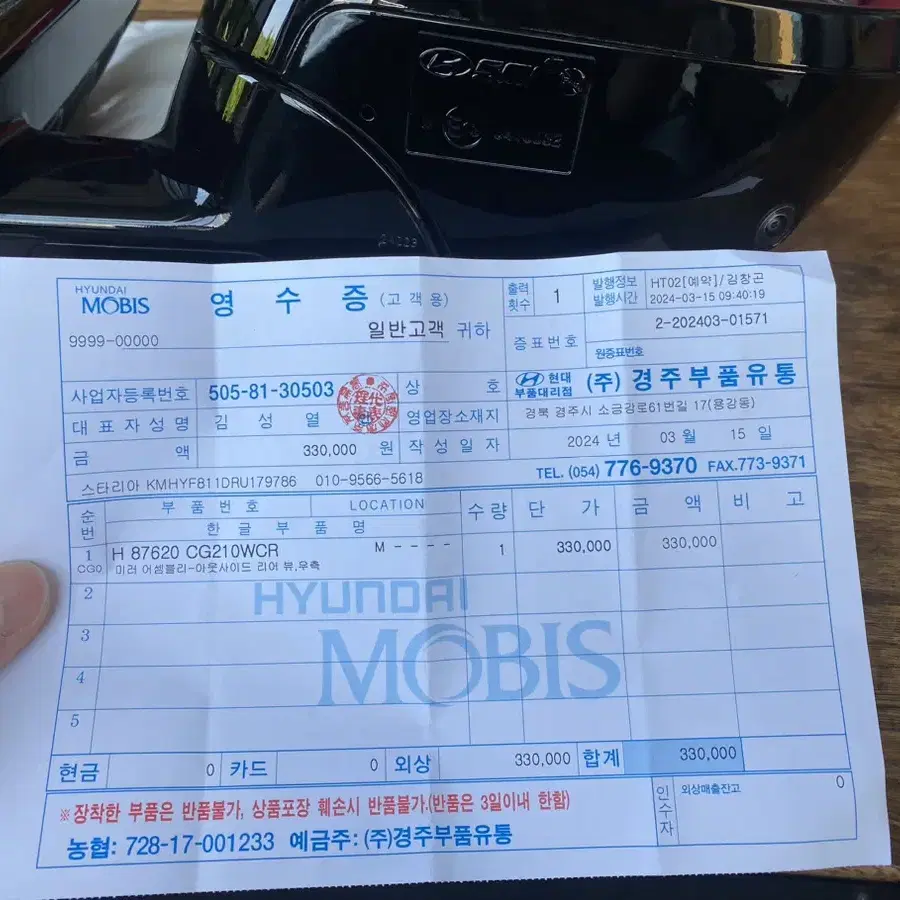 HYUNDAI
MOBIS
영 수 증 (고 객 용)
출력횟수 1
발행정보 HT02[예약]/김창곤
발행시간 2024-03-15 09:40:19
9999-00000
일반고객 귀하
증표번호 2-202403-01571
원증표번호
사업자등록번호 505-81-30503
상 호 현대 부품대리점 (주) 경주부품유통
대 표 자 성 명 김 성 열
영업장소재지 경북 경주시 소금강로61번길 17(용강동)
금 액 330,000 원
작 성 일 자 2024 년 03 월 15 일
스타리아 KMHYF811DRU179786 010-9566-5618
TEL. (054) 776-9370 FAX.773-9371
순번 부 품 번 호 LOCATION 수 량 단 가 금 액 비 고
한 글 부 품 명
1 H 87620 CG210WCR M - - - - 1 330,000 330,000
CG0 미러 어셈블리-아웃사이드 리어 뷰,우측
2
HYUNDAI
3
MOBIS
4
5
현금 0 카드 0 외상 330,000 합계 330,000
※장착한 부품은 반품불가, 상품포장 훼손시 반품불가.(반품은 3일이내 한함)
인수자 외상매출잔고 0
농협: 728-17-001233 예금주: (주)경주부품유통